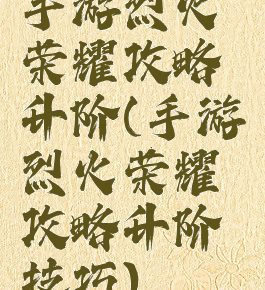 手游烈火
荣耀攻略
升阶(手游
烈火荣耀
攻略升阶
技巧)